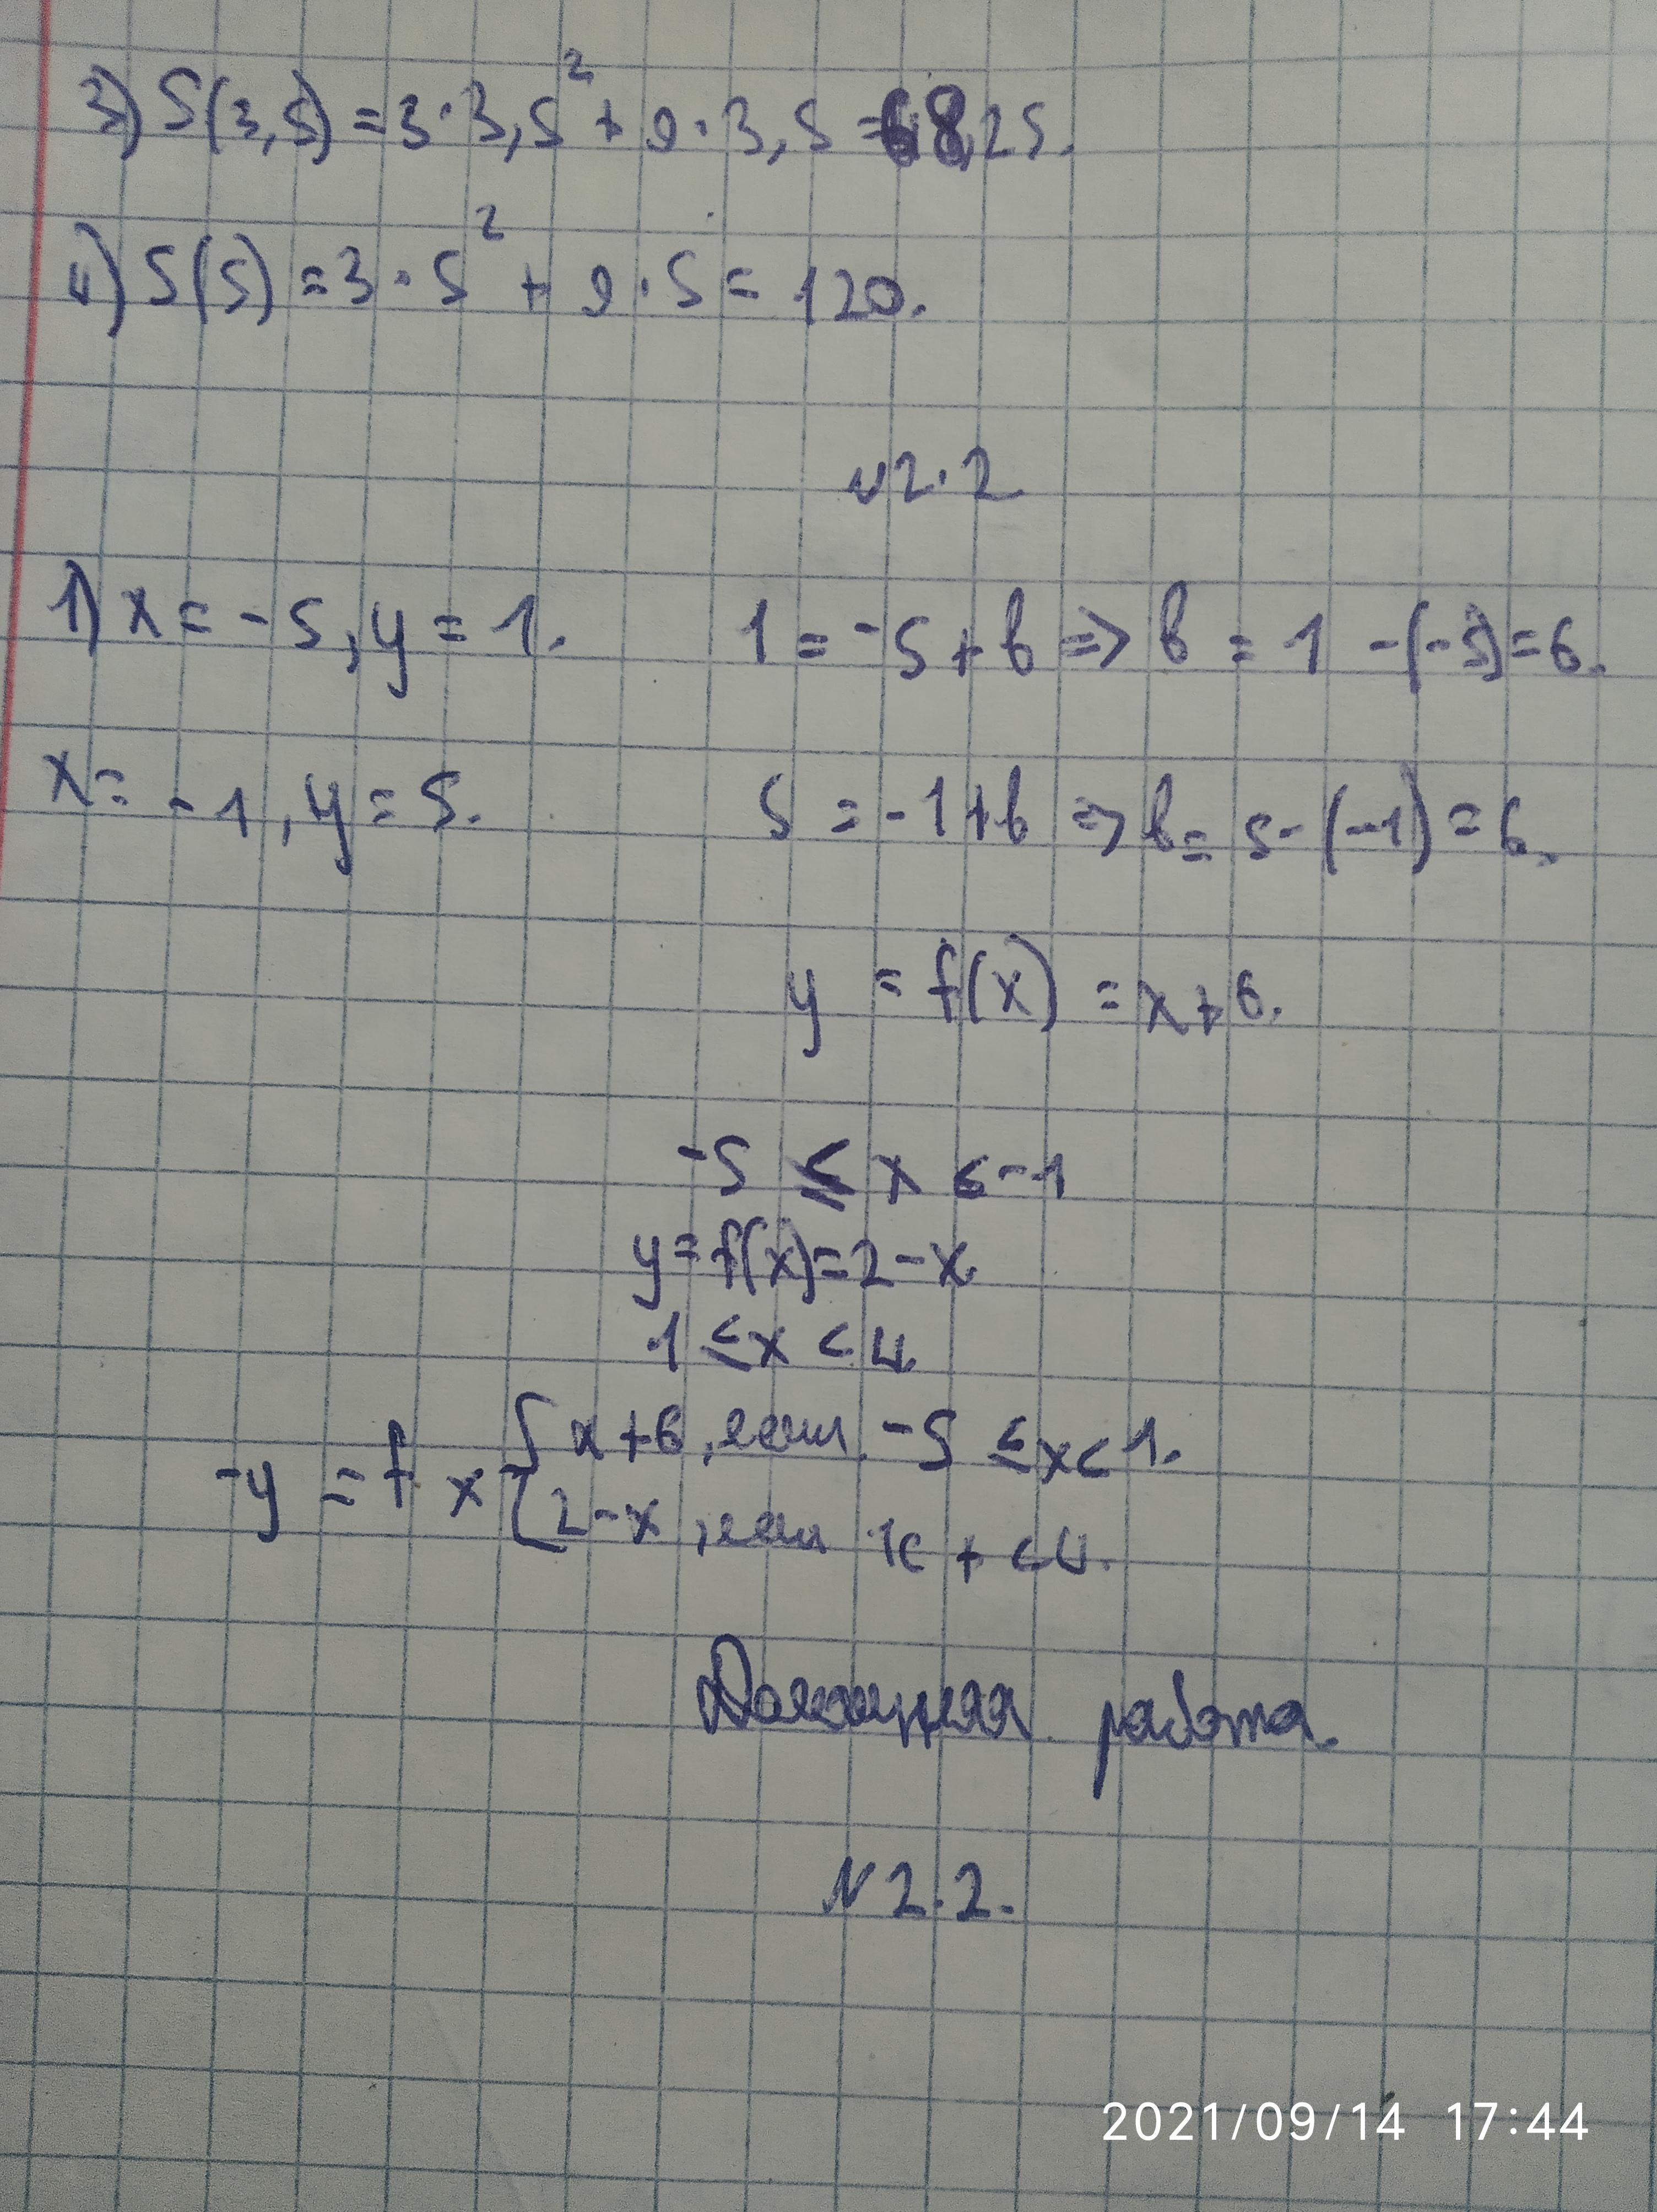 3) S(3,5) = 3·3,5² + 9·3,5 = 68,25.
4) S(5) = 3·5² + 9·5 = 120.
N2.2
1) x = -5, y = 1. 1 = -5 + b => b = 1 - (-5) = 6.
x = -1, y = 5. 5 = -1 + b => b = 5 - (-1) = 6.
y = f(x) = x + 6.
-5 ≤ x < -1
y = f(x) = 2 - x
-1 ≤ x < 4
-y = f x { x + 6, если -5 ≤ x < 1.
2 - x, если < 4.
Домашняя работа.
N 2.2.
2021/09/14 17:44